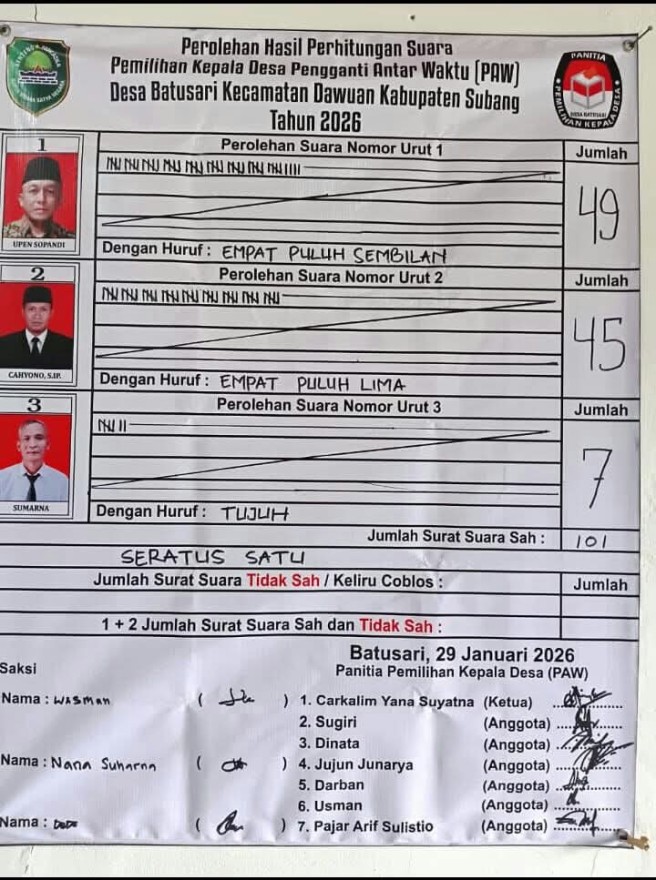 Perolehan Hasil Perhitungan Suara
Pemilihan Kepala Desa Pengganti Antar Waktu (PAW)
Desa Batusari Kecamatan Dawuan Kabupaten Subang
Tahun 2026
PANITIA
PEMILIHAN KEPALA DESA
DESA BATUSARI
1
UPEN SOPANDI
Perolehan Suara Nomor Urut 1
Jumlah
49
Dengan Huruf : EMPAT PULUH SEMBILAN
2
CAHYONO, S.IP.
Perolehan Suara Nomor Urut 2
Jumlah
45
Dengan Huruf : EMPAT PULUH LIMA
3
SUMARNA
Perolehan Suara Nomor Urut 3
Jumlah
7
Dengan Huruf : TUJUH
Jumlah Surat Suara Sah : 101
SERATUS SATU
Jumlah Surat Suara Tidak Sah / Keliru Coblos : Jumlah
1 + 2 Jumlah Surat Suara Sah dan Tidak Sah :
Batusari, 29 Januari 2026
Saksi
Panitia Pemilihan Kepala Desa (PAW)
Nama : WASMAN ( ) 1. Carkalim Yana Suyatna (Ketua)
2. Sugiri (Anggota)
3. Dinata (Anggota)
Nama : Nana Suharna ( ) 4. Jujun Junarya (Anggota)
5. Darban (Anggota)
6. Usman (Anggota)
Nama : ( ) 7. Pajar Arif Sulistio (Anggota)